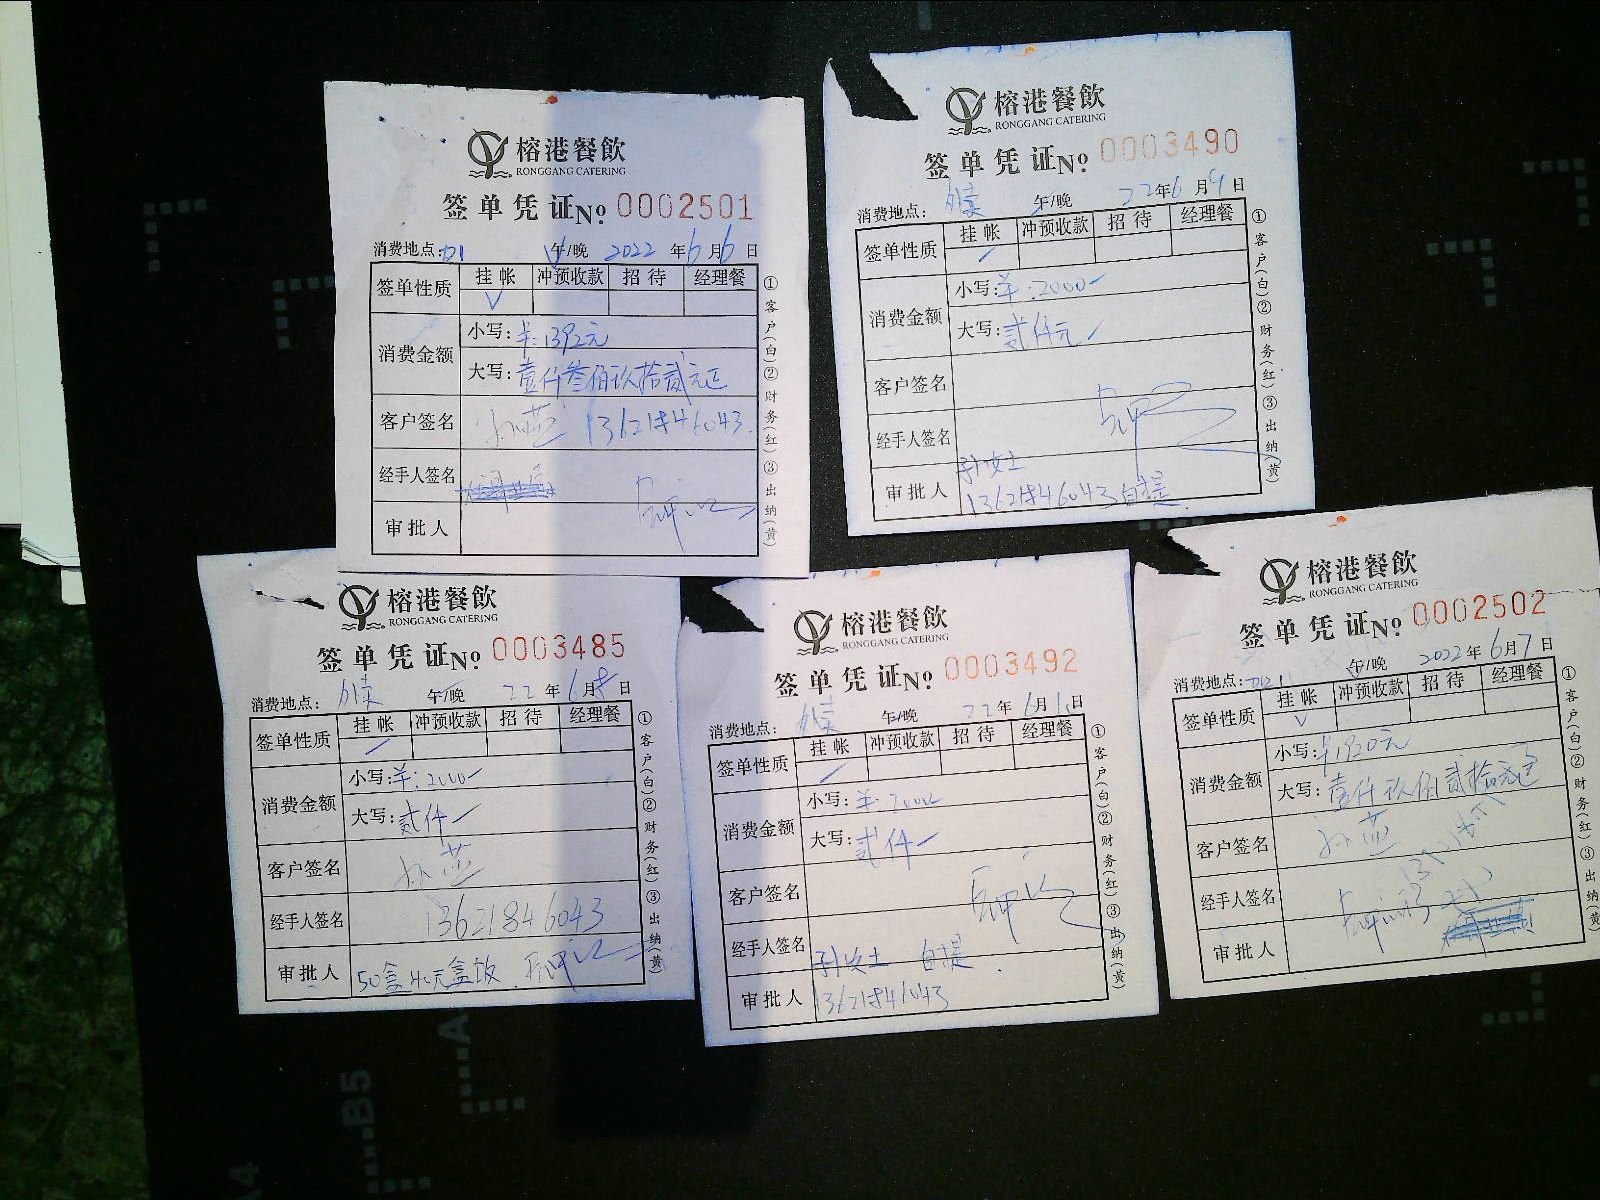 榕港餐飲
RONGGANG CATERING
签单凭证No 0002501
消费地点: 01 午/晚 2022 年 6 月 6 日
签单性质 挂帐 冲预收款 招待 经理餐
√
消费金额 小写: ¥:1392元
大写: 壹仟叁佰玖拾贰元正
客户签名 孙蓝 13621846043
经手人签名
审批人
①客户(白)②财务(红)③出纳(黄)
榕港餐飲
RONGGANG CATERING
签单凭证No 0003490
消费地点: 外卖 午/晚 22年6月9日
签单性质 挂帐 冲预收款 招待 经理餐
消费金额 小写: ¥:2000-
大写: 贰仟元
客户签名
经手人签名
孙女士
审批人 13621846043 自提
①客户(白)②财务(红)③出纳(黄)
榕港餐飲
RONGGANG CATERING
签单凭证No 0003485
消费地点: 外卖 午/晚 22 年 6 月 8 日
签单性质 挂帐 冲预收款 招待 经理餐
消费金额 小写: ¥:2000-
大写: 贰仟
客户签名 孙蓝
经手人签名 13621846043
审批人 50盒40元盒饭.
①客户(白)②财务(红)③出纳(黄)
榕港餐飲
RONGGANG CATERING
签单凭证No 0003492
消费地点: 外卖 午/晚 22 年 6 月 日
签单性质 挂帐 冲预收款 招待 经理餐
消费金额 小写: ¥:2000
大写: 贰仟
客户签名
经手人签名 孙女士 自提.
审批人 13621846043
①客户(白)②财务(红)③出纳(黄)
榕港餐飲
RONGGANG CATERING
签单凭证No 0002502
消费地点: 午/晚 2022 年 6 月 7 日
签单性质 挂帐 冲预收款 招待 经理餐
√
消费金额 小写: ¥1920元
大写: 壹仟玖佰贰拾元正
客户签名 孙蓝
经手人签名
审批人
①客户(白)②财务(红)③出纳(黄)
B5
A4